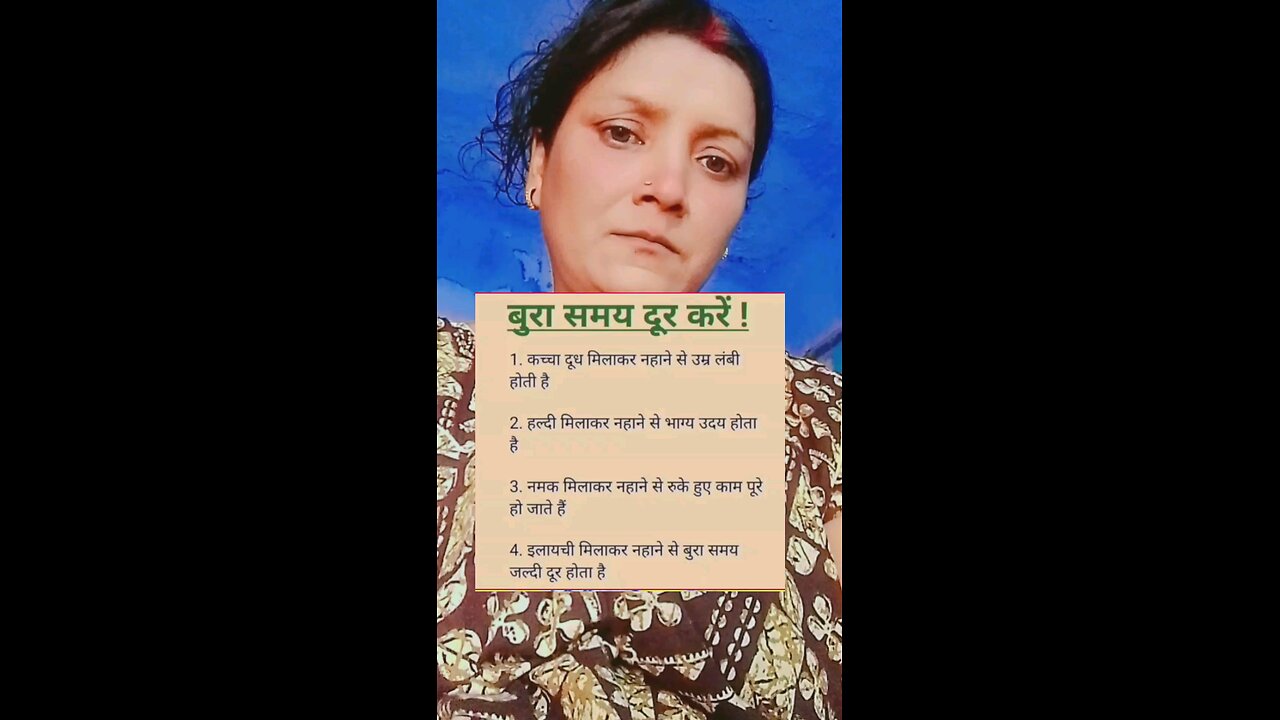 बुरा समय दूर करें !
1. कच्चा दूध मिलाकर नहाने से उम्र लंबी
होती है
2. हल्दी मिलाकर नहाने से भाग्य उदय होता
है
3. नमक मिलाकर नहाने से रुके हुए काम पूरे
हो जाते हैं
4. इलायची मिलाकर नहाने से बुरा समय
जल्दी दूर होता है